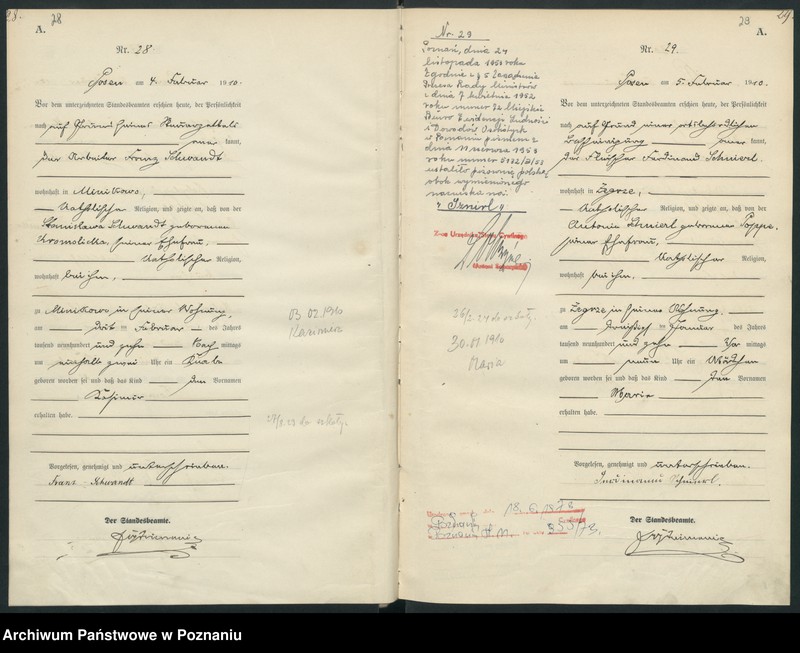 28
A.
Nr. 28
Posen am 4. Februar 1910.
Vor dem unterzeichneten Standesbeamten erschien heute, der Persönlichkeit
nach auf Grund seines
kannt,
der Arbeiter Franz Schwandt
wohnhaft in Minikowo,
katholischer Religion, und zeigte an, daß von der
Stanislawa Schwandt geborenen
seiner Ehefrau,
katholischer Religion,
wohnhaft bei ihm,
zu Minikowo in seiner Wohnung,
am drei ten Februar des Jahres
tausend neunhundert und zehn Nach mittags
um einhalb zwei Uhr ein Knabe
geboren worden sei und daß das Kind den Vornamen
Kasimir
erhalten habe.
Vorgelesen, genehmigt und unterschrieben.
Franz Schwandt
Der Standesbeamte.
03.02.1910
Kazimierz
do szkoły.
29.
A.
Nr. 29.
Posen am 5. Februar 1910.
Vor dem unterzeichneten Standesbeamten erschien heute, der Persönlichkeit
nach auf Grund einer
Bescheinigung
kannt,
der Fleischer Ferdinand Schnierl.
wohnhaft in Zegrze,
katholischer Religion, und zeigte an, daß von der
Antonie Schnierl geborenen
seiner Ehefrau,
katholischer Religion,
wohnhaft bei ihm,
zu Zegrze in seiner Wohnung,
am dreißigsten Januar des Jahres
tausend neunhundert und zehn Vor mittags
um neun Uhr ein Mädchen
geboren worden sei und daß das Kind den Vornamen
Maria
erhalten habe.
Vorgelesen, genehmigt und unterschrieben.
Ferdinand Schnierl.
Der Standesbeamte.
Nr. 29
Poznań, dnia 24
listopada 1953 roku
Zgodnie z § 5 Zarządzenia
Prezesa Rady Ministrów
z dnia 7 kwietnia 1952
roku numer
Biuro Ewidencji Ludności
i Dowodów Osobistych
w Poznaniu pismem z
dnia
roku numer
ustaliło pisownię polską
obok wymienionego
nazwiska na:
"Sznirl".
do szkoły.
30.01.1910
Maria
Archiwum Państwowe w Poznaniu